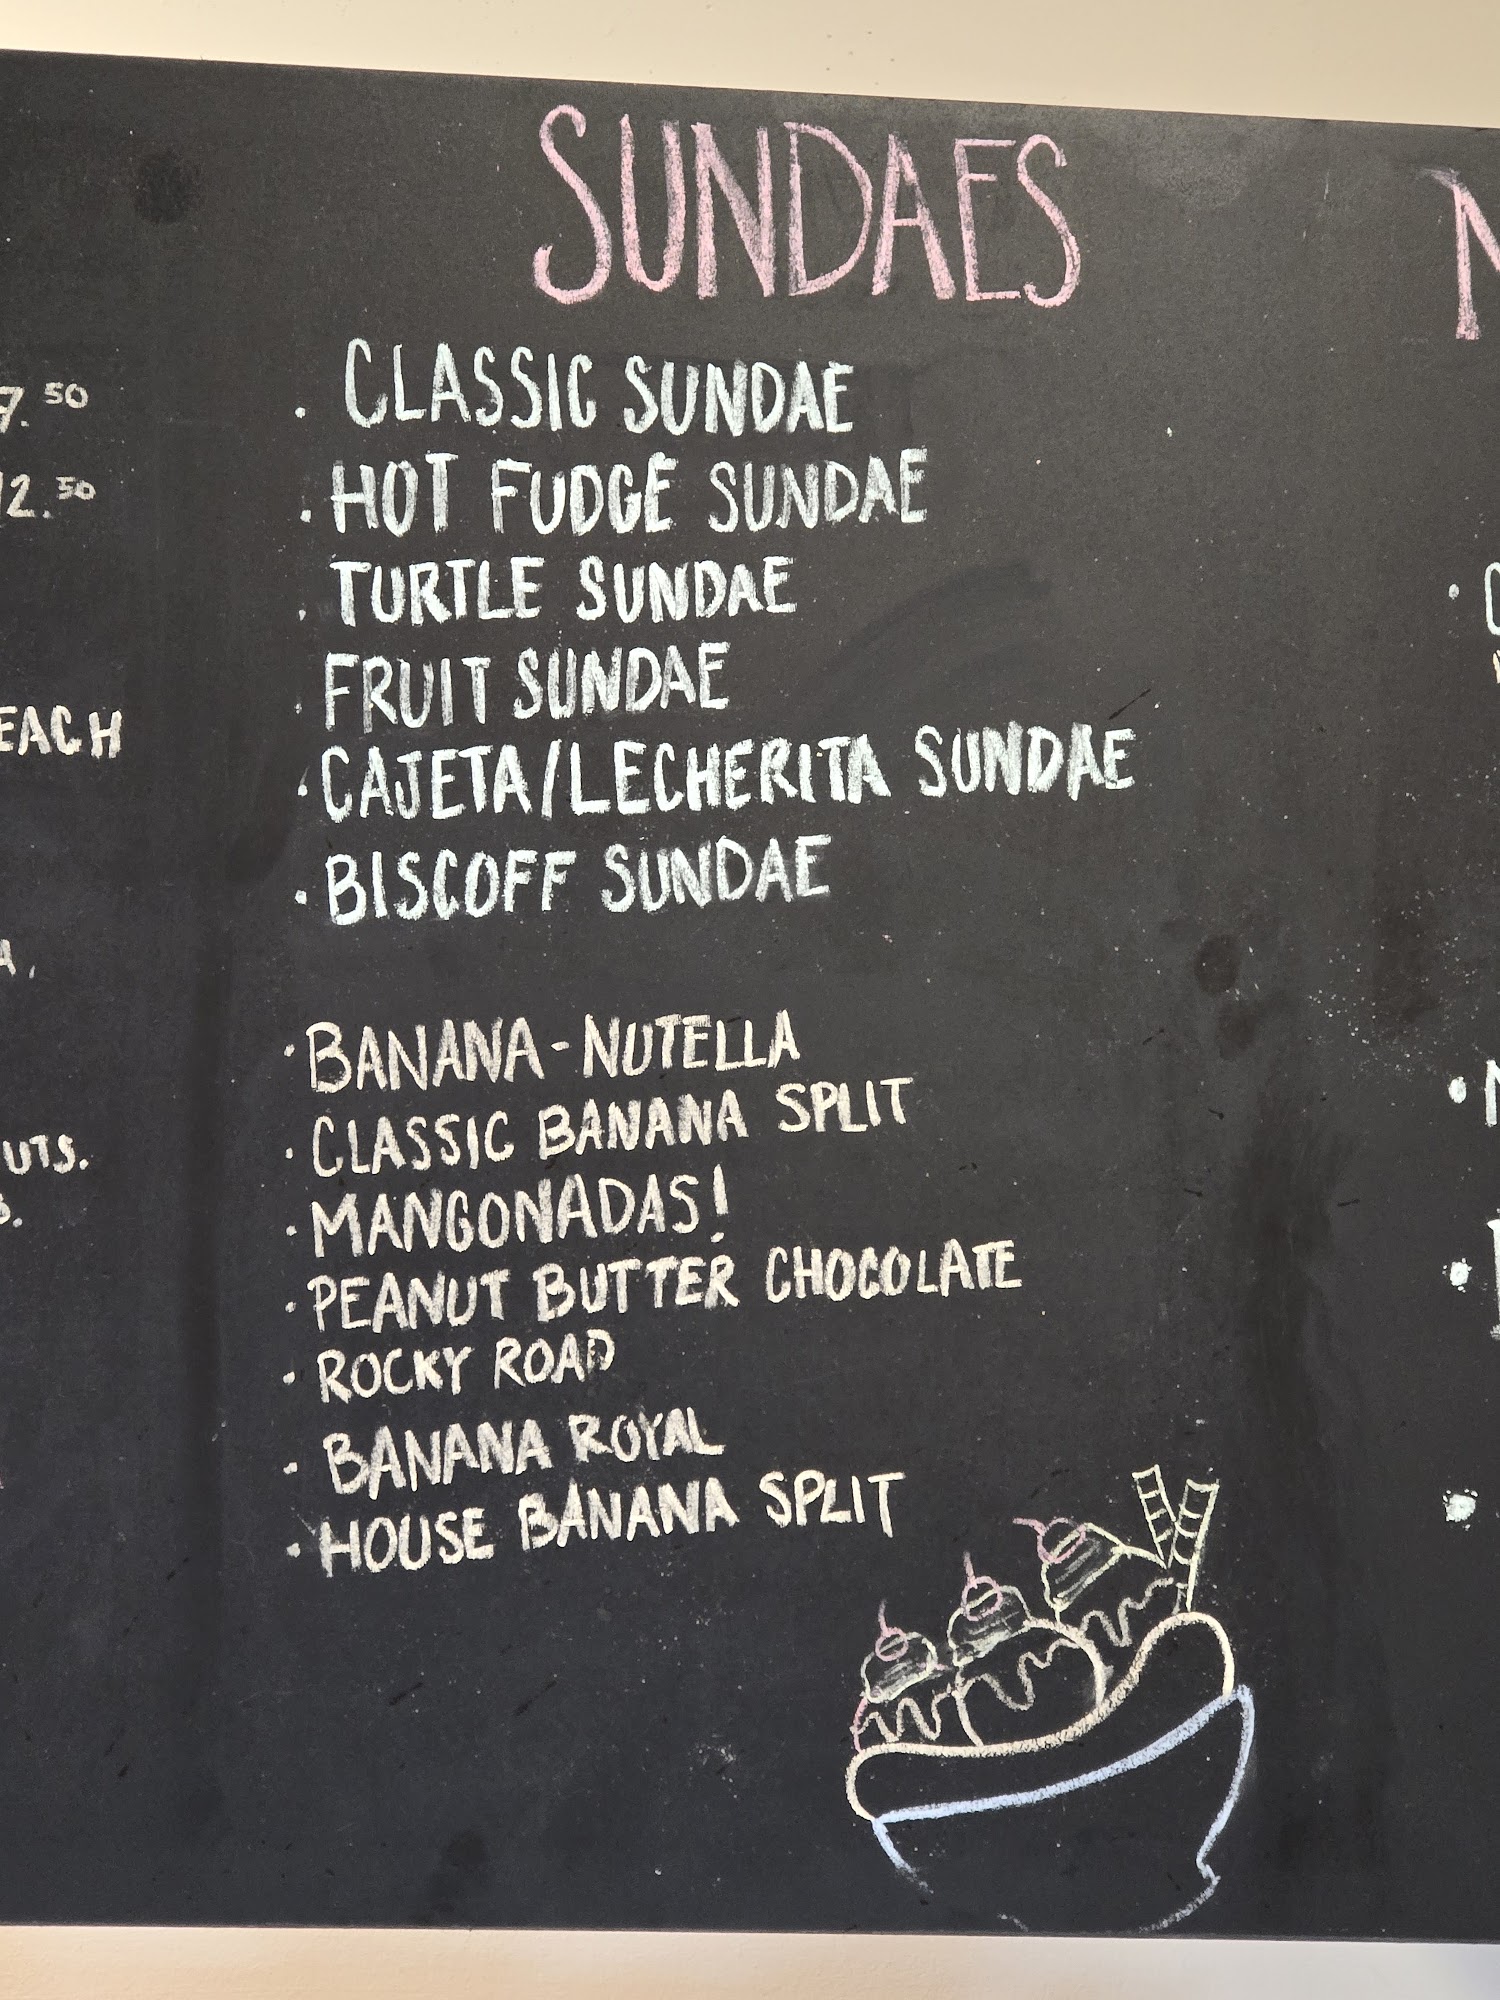 SUNDAES
. CLASSIC SUNDAE
. HOT FUDGE SUNDAE
. TURTLE SUNDAE
. FRUIT SUNDAE
. CAJETA/LECHERITA SUNDAE
. BISCOFF SUNDAE
· BANANA-NUTELLA
· CLASSIC BANANA SPLIT
· MANGONADAS!
· PEANUT BUTTER CHOCOLATE
· ROCKY ROAD
· BANANA ROYAL
· HOUSE BANANA SPLIT
7.50
12.50
EACH